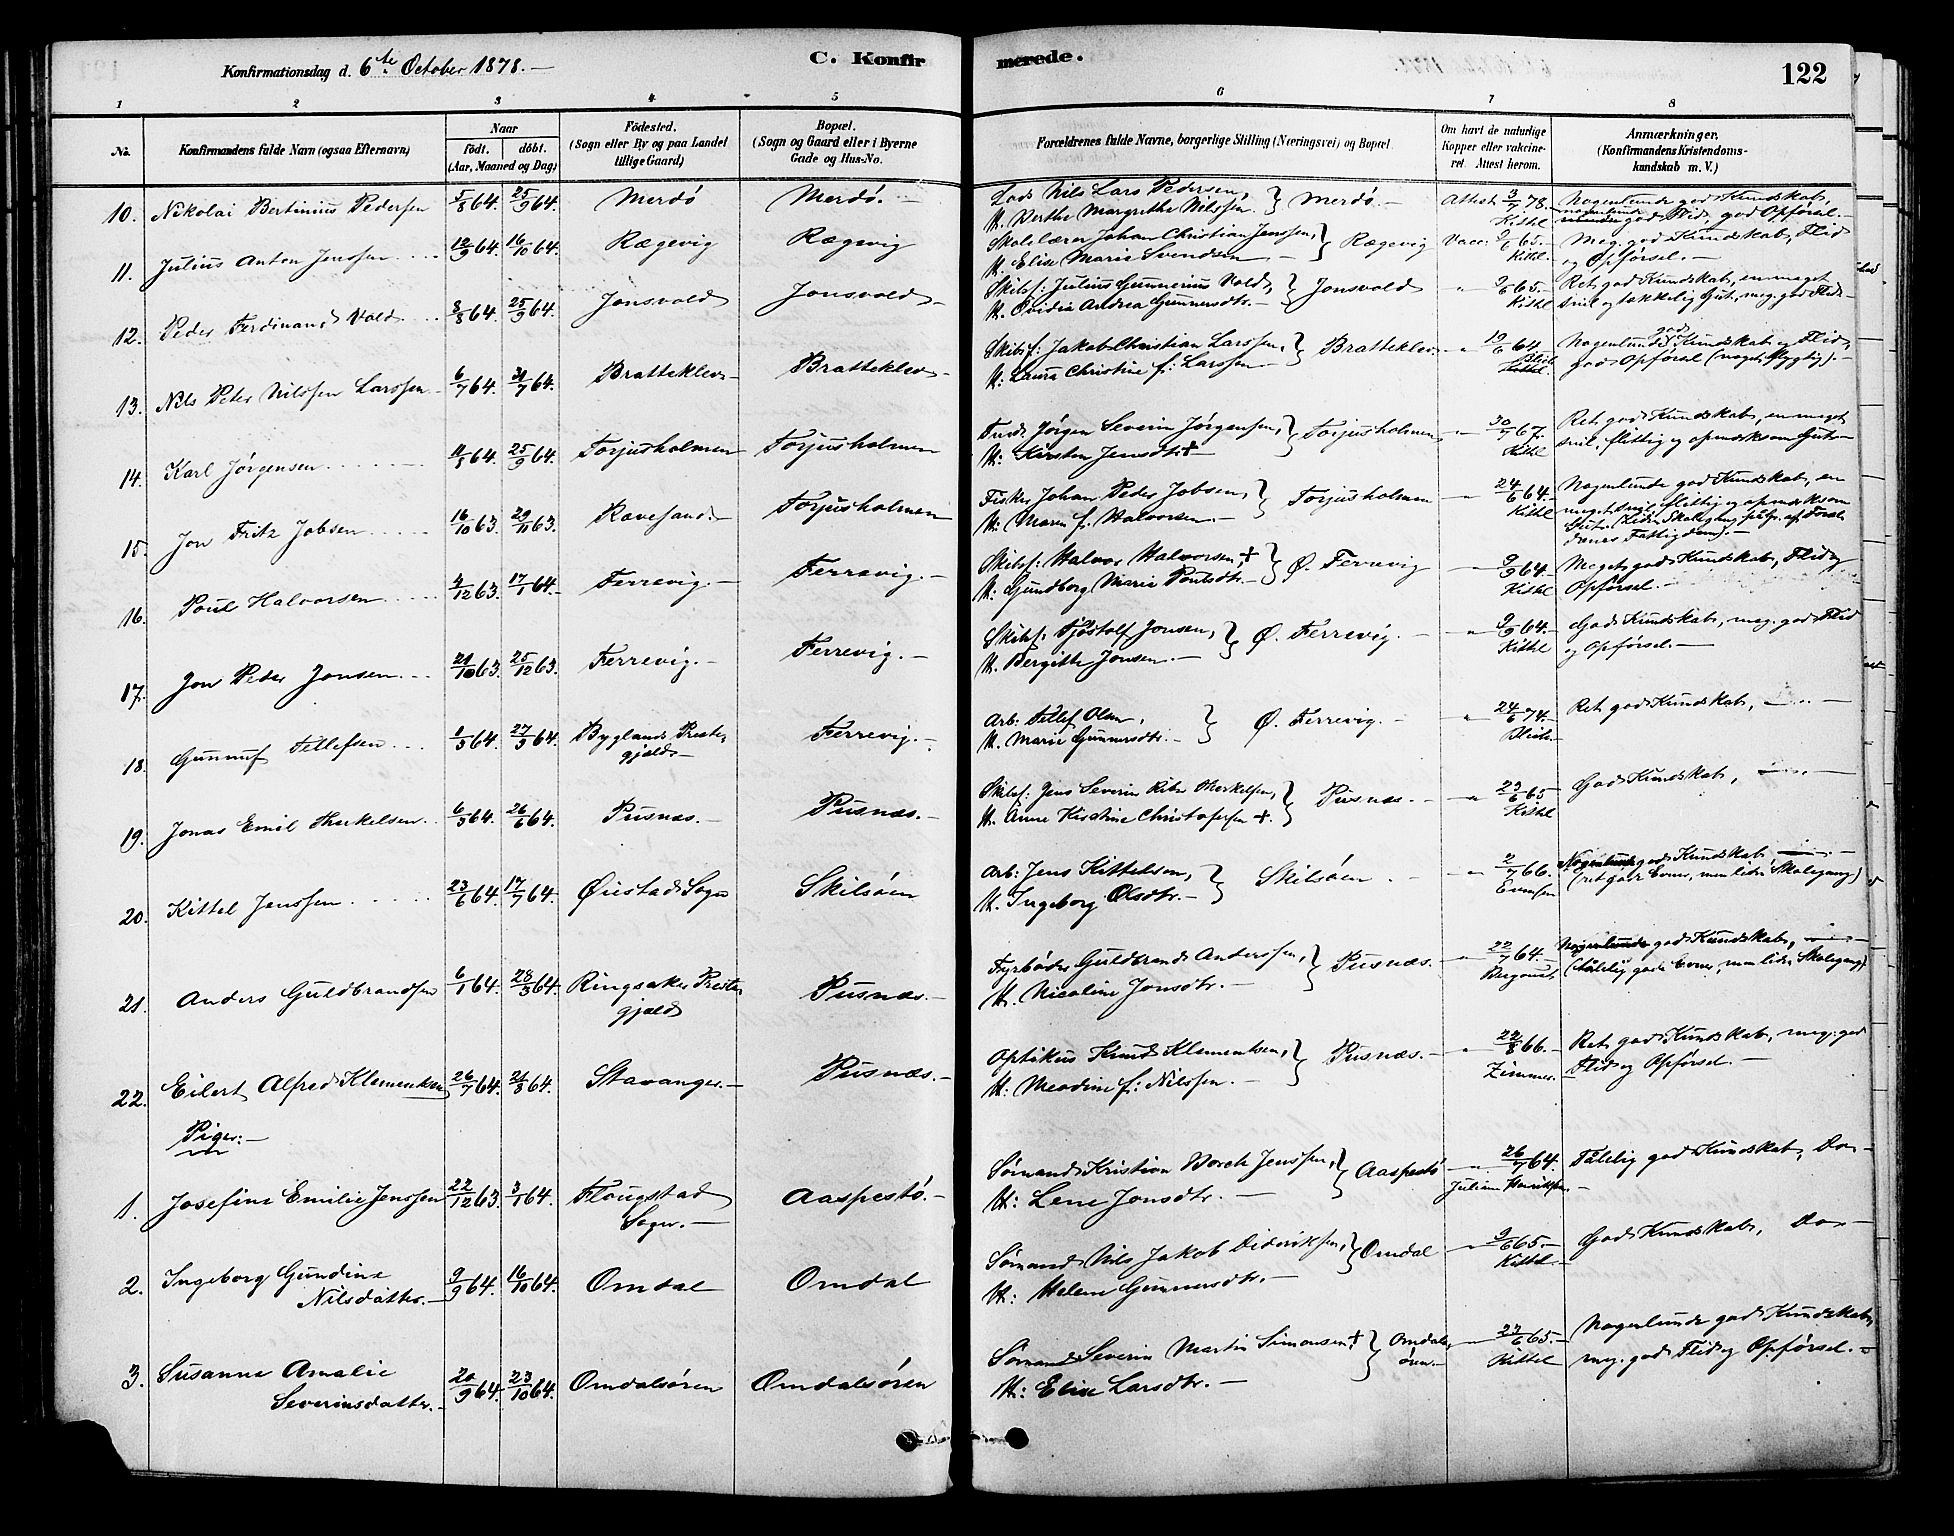 Konfirmationsdag d. 6te October 1878.—
C. Konfirmerede.
122
1 2 3 4 5 6 7 8
No. Konfirmandens fulde Navn (ogsaa Efternavn) Naar födt. döbt. (Aar, Maaned og Dag) Födested. (Sogn eller By og paa Landet tillige Gaard) Bopæl. (Sogn og Gaard eller i Byerne Gade og Hus-No.
Forældrenes fulde Navne, borgerlige Stilling (Næringsvei) og Bopæl. Om havt de naturlige Kopper eller vakcineret. Attest herom. Anmærkninger. (Konfirmandens Kristendomskundskab m. V.)
10. Nikolai Bertinius Pedersen 5/8 64. 25/9 64. Merdö Merdö.—
Lods Nils Lars Pedersen, H. Berthe Margrethe Nilssen. } Merdö. Attest 3/7 78. Kittel Nogenlunde god Kundskab, nogenlunde god Flid, god Opförsel.—
11. Julius Anton Jenssen 12/9 64. 16/10 64. Rægevig Rægevig
Skolelærer Johan Christian Jenssen, H. Elise Marie Svendsen } Rægevig Vacc. 9/6 65. Kittel. Meg. god Kundskab, Flid og Opförsel.—
12. Peder Ferdinand Vold 3/8 64. 25/9 64. Jonsvold Jonsvold
Skibsf: Julius Gunnerius Vold, H. Ovidia Andrea Gunnersdtr.— } Jonsvold " 9/6 65. Kittel Ret god Kundskab, en meget snil og tækkelig Gut, meg. god Flid.—
13. Nils Peter Nilssen Larssen 6/7 64. 31/7 64. Bratteklev Bratteklev
Skibsf: Jakob Christian Larssen, H: Laura Christine f: Larssen } Bratteklev " 19/6 64. Nogenlunde god Kundskab og Flid, god Opförsel (noget flygtig).—
14. Karl Jörgensen 11/8 64. 25/9 64. Torjusholmen Torjusholmen
Jörgen Severin Jörgensen, H: Kirsten Jensdtr + } Torjusholmen " 30/7 67. Kittel Ret god Kundskab, en meget snil, flittig og opmærksom Gut.—
15. Jon Fritz Jobsen 16/10 63. 29/11 63. Ravesand Torjusholmen
Fisker Johan Peder Jobsen, H: Maren f. Halvorsen.— } Torjusholmen " 24/6 64. Kittel Nogenlunde god Kundskab, en meget snil, flittig og opmærksom Gut. (Liden Skolegang paa Gr. af Foreldrenes Fattigdom).—
16. Poul Halvorsen 4/12 63. 17/1 64. Ferrevig.— Ferrevig.—
Skibsf: Halvor Halvorsen, + H: Gundborg Marie Poulsdtr.— } Ö. Ferrevig — 9/9 64. Kittel Meget god Kundskab, Flid og Opförsel.—
17. Jon Peder Jonsen 21/10 63. 25/12 63. Ferrevig.— Ferrevig.—
Skibsf: Tjöstolf Jonsen, H. Bergitte Jonsen.— } Ö. Ferrevig.— " 9/9 64. Kittel God Kundskab, meg. god Flid og Opförsel.—
18. Gunnuf Tellefsen 1/3 64. 27/3 64. Byglands Prestegjeld Ferrevig.—
Arb: Tellef Olsen, H. Marie Gunnersdtr.— } Ö. Ferrevig.— " 24/6 74. Ret god Kundskab, — " —
19. Jonas Emil Therkelsen 6/5 64. 26/6 64. Pusnæs.— Pusnæs.—
Skibsf: Jens Severin Therkelsen, H. Anne Kirstine Christofersen +. } Pusnæs.— " 23/6 65 Kittel God Kundskab, — " —
20. Kittel Jenssen 23/6 64. 17/7 64. Öiestad Sogn Skilsöen
Arb: Jens Kittelsen, H. Ingeborg Olsdtr.— } Skilsöen.— — 2/7 66. Evensen Nogenlunde god Kundskab — " — (ret gode Evner, men liden Skolegang)
21. Anders Guldbrandsen 6/1 64. 28/3 64. Ringsaker Prestegjæld Pusnæs.—
Fyrböder Guldbrand Anderssen, H. Nicoline Jonsdtr.— } Pusnæs.— " 22/7 64. Nogenlunde god Kundskab, — " — (taalelig gode Evner, men liden Skolegang)
22. Eilert Alfred Klementsen 26/7 64. 21/8 64. Stavanger.— Pusnæs.—
Optikus Knud Klementsen, H: Meadine f: Nilssen.— } Pusnæs.— " 22/8 66.— Zimmer.— Ret god Kundskab, meg. god Flid og Opförsel.—
Piger:—
1. Josefine Emilie Jenssen 22/12 63. 3/1 64. Flougstad Sogn.— Aaspestö.—
Sömand Kristian Borch Jenssen, H: Lene Jonsdtr.— } Aaspestö — 26/7 64. Julian Henriksen.— Tålelig god Kundskab, Do.—
2. Ingeborg Gundine Nilsdatter.— 9/9 64. 16/10 64. Omdal Omdal
Sömand Nils Jakob Dideriksen, H: Helene Gunnersdtr.— } Omdal — 9/6 65.— Kittel. God Kundskab, Do.—
3. Susanne Amalie Severinsdatter.— 20/9 64. 23/10 64. Omdalsören Omdalsören
Sömand Severin Martin Simonsen + H: Elise Larsdtr.— } Omdalsören.— — 23/6 65.— Kittel Nogenlunde god Kundskab, meg. god Flid og Opförsel.—